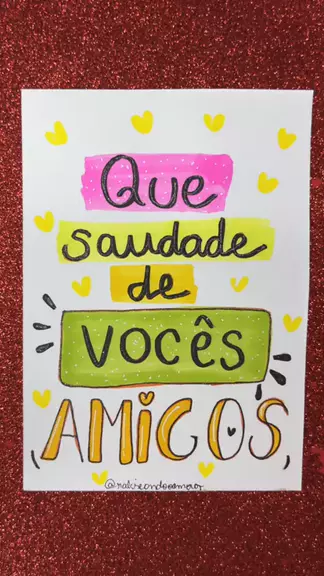 Que
saudade
de
VOCÊS
AMIGOS